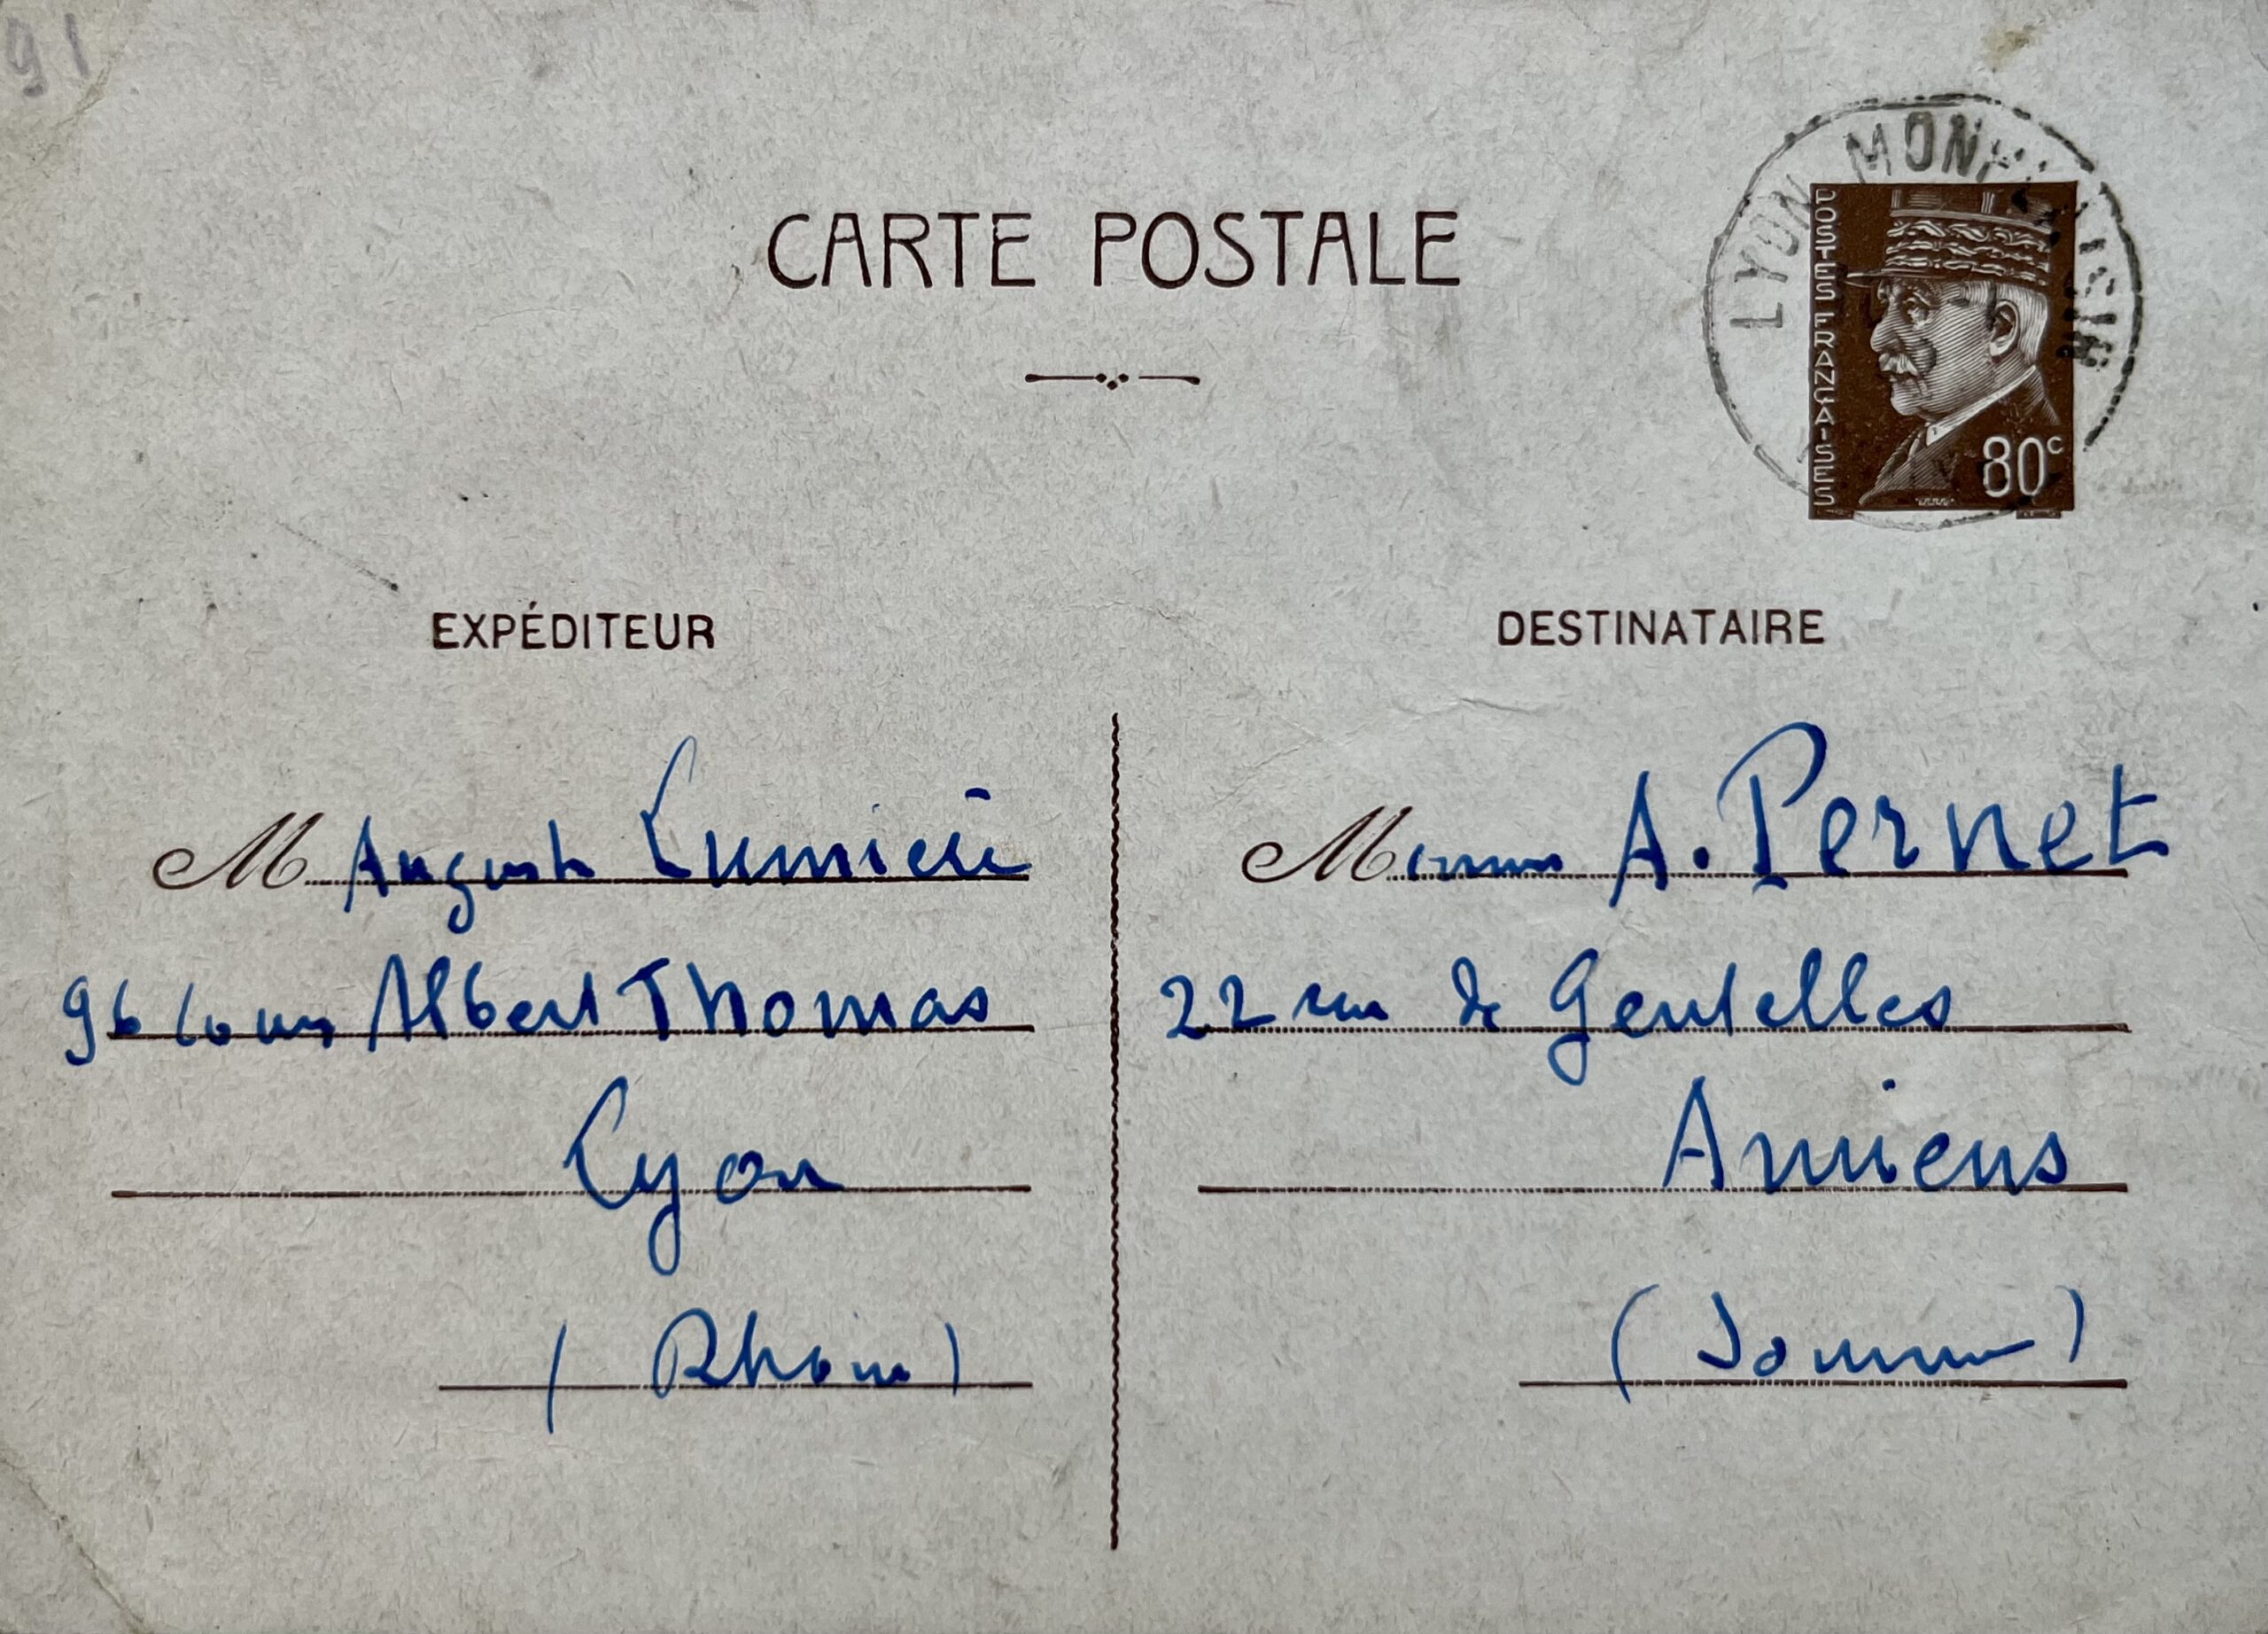 91
CARTE POSTALE
LYON MONPLAISIR
POSTES FRANÇAISES
80c
EXPÉDITEUR
M Auguste Lumière
96 Cours Albert Thomas
Lyon
(Rhône)
DESTINATAIRE
A. Pernet
22 rue de Gentelles
Amiens
(Somme)